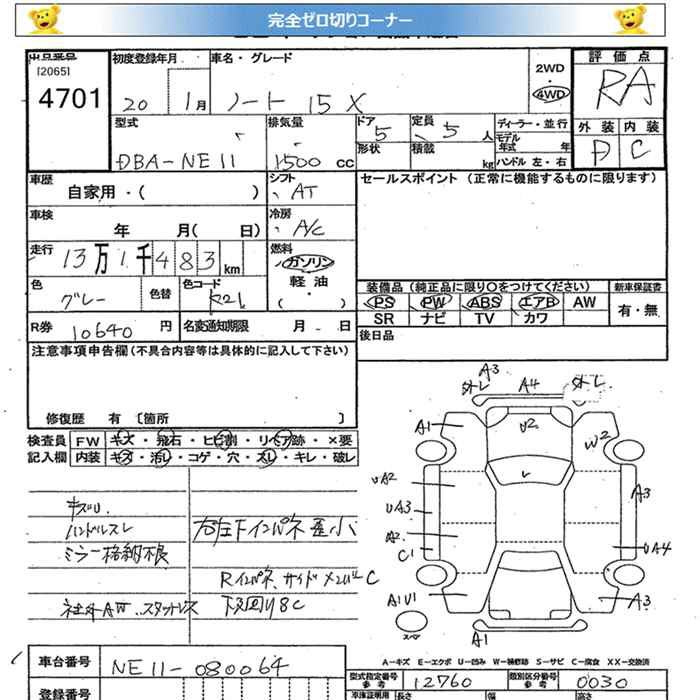 完全ゼロ切りコーナー
出品番号
[2065]
4701
初度登録年月
20 1月
車名・グレード
ノート 15 X
2WD
・
4WD
評価点
RA
外装 内装
D C
型式
DBA-NE11
排気量
1500 CC
ドア
5
定員
5 人
形状
積載
kg
ディーラー・並行
モデル年式 年
ハンドル 左・右
車歴
自家用・( )
シフト
AT
セールスポイント (正常に機能するものに限ります)
車検
年 月( 日)
冷房
A/C
走行
13万1千483km
燃料
ガソリン
軽油
・( )
色
グレー
色替
色コード
K21
装備品(純正品に限り○をつけてください)
新車保証書
PS PW ABS エアB AW
SR ナビ TV カワ
有・無
R券
10640 円
名変通知期限 月 日
後日品
注意事項申告欄(不具合内容等は具体的に記入して下さい)
修復歴 有 [箇所 ]
検査員記入欄
FW キズ・飛石・ヒビ割・リペア跡・×要
内装 キズ・汚レ・コゲ・穴・スレ・キレ・破レ
キズU
ハンドルスレ
ミラー格納不良
社外AW.スタットレス
右左下インパネ歪小
Rインパネ、サイドメンバーC
下回りSC
A3
外レ
A4
外レ
A1
U2
W2
UA2
A3
UA3
A2
C1
UA4
A1U1
A3
スペア
A1
A-キズ E-エクボ U-凹み W-補修跡 S-サビ C-腐食 XX-交換済
車台番号
NE11-080064
型式指定番号
参考
12760
類別区分番号
参考
0030
登録番号
車庫証明用
長さ
幅
高さ